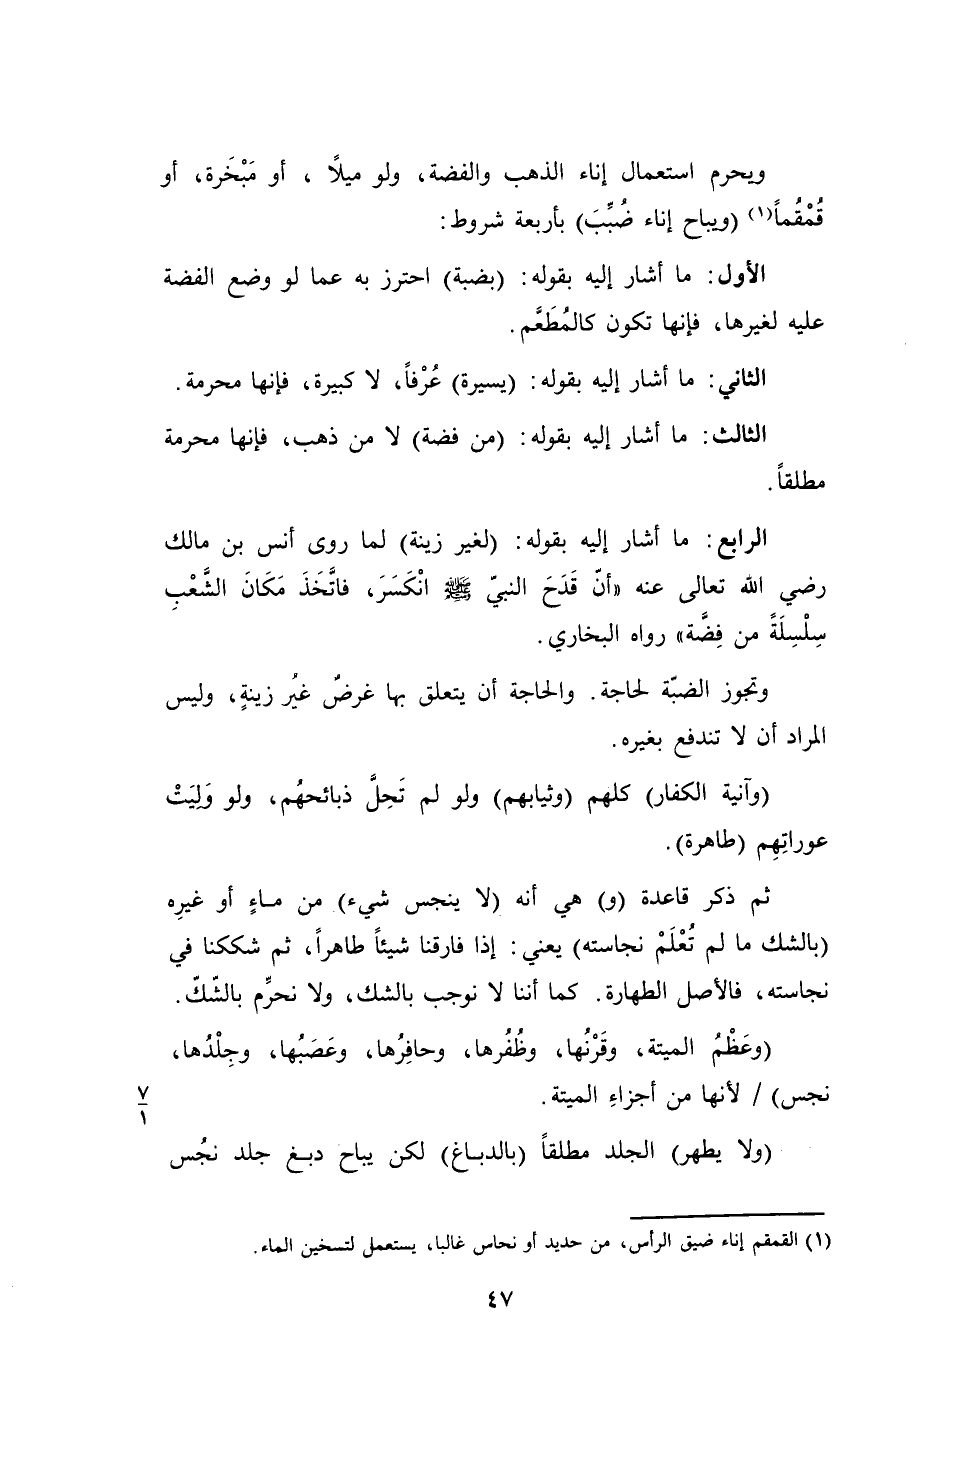 ويحرم استعمال إناء الذهب والفضة، ولو ميلًا ، أو مَبْخَرة، أو
قُمْقُماً(١) (ويباح إناء ضُبِّبَ) بأربعة شروط:
الأول: ما أشار إليه بقوله: (بضبة) احترز به عما لو وضع الفضة
عليه لغيرها، فإنها تكون كالمُطَعَّم.
الثاني: ما أشار إليه بقوله: (يسيرة) عُرْفاً، لا كبيرة، فإنها محرمة.
الثالث: ما أشار إليه بقوله: (من فضة) لا من ذهب، فإنها محرمة
مطلقاً.
الرابع: ما أشار إليه بقوله: (لغير زينة) لما روى أنس بن مالك
رضي الله تعالى عنه «أنّ قَدَحَ النبيّ ﷺ انْكَسَرَ، فاتَّخَذَ مَكَانَ الشَّعْبِ
سِلْسِلَةً من فِضَّة» رواه البخاري.
وتجوز الضبّة لحاجة. والحاجة أن يتعلق بها غرضٌ غيُر زينةٍ، وليس
المراد أن لا تندفع بغيره.
(وآنية الكفار) كلهم (وثيابهم) ولو لم تَحِلَّ ذبائحهُم، ولو وَلِيَتْ
عوراتِهِم (طاهرة).
ثم ذكر قاعدة (و) هي أنه (لا ينجس شيء) من مـاءٍ أو غيرِه
(بالشك ما لم تُعْلَمْ نجاسته) يعني: إذا فارقنا شيئاً طاهراً، ثم شككنا في
نجاسته، فالأصل الطهارة. كما أننا لا نوجب بالشك، ولا نحرِّم بالشّكّ.
(وعَظْمُ الميتة، وقَرْنُها، وظُفُرها، وحافِرُها، وعَصَبُها، وجِلْدُها،
نجس) / لأنها من أجزاءِ الميتة.
٧
١
(ولا يطهر) الجلد مطلقاً (بالدبـاغ) لكن يباح دبـغ جلد نجُس
(١) القمقم إناء ضيق الرأس، من حديد أو نحاس غالبا، يستعمل لتسخين الماء.
٤٧